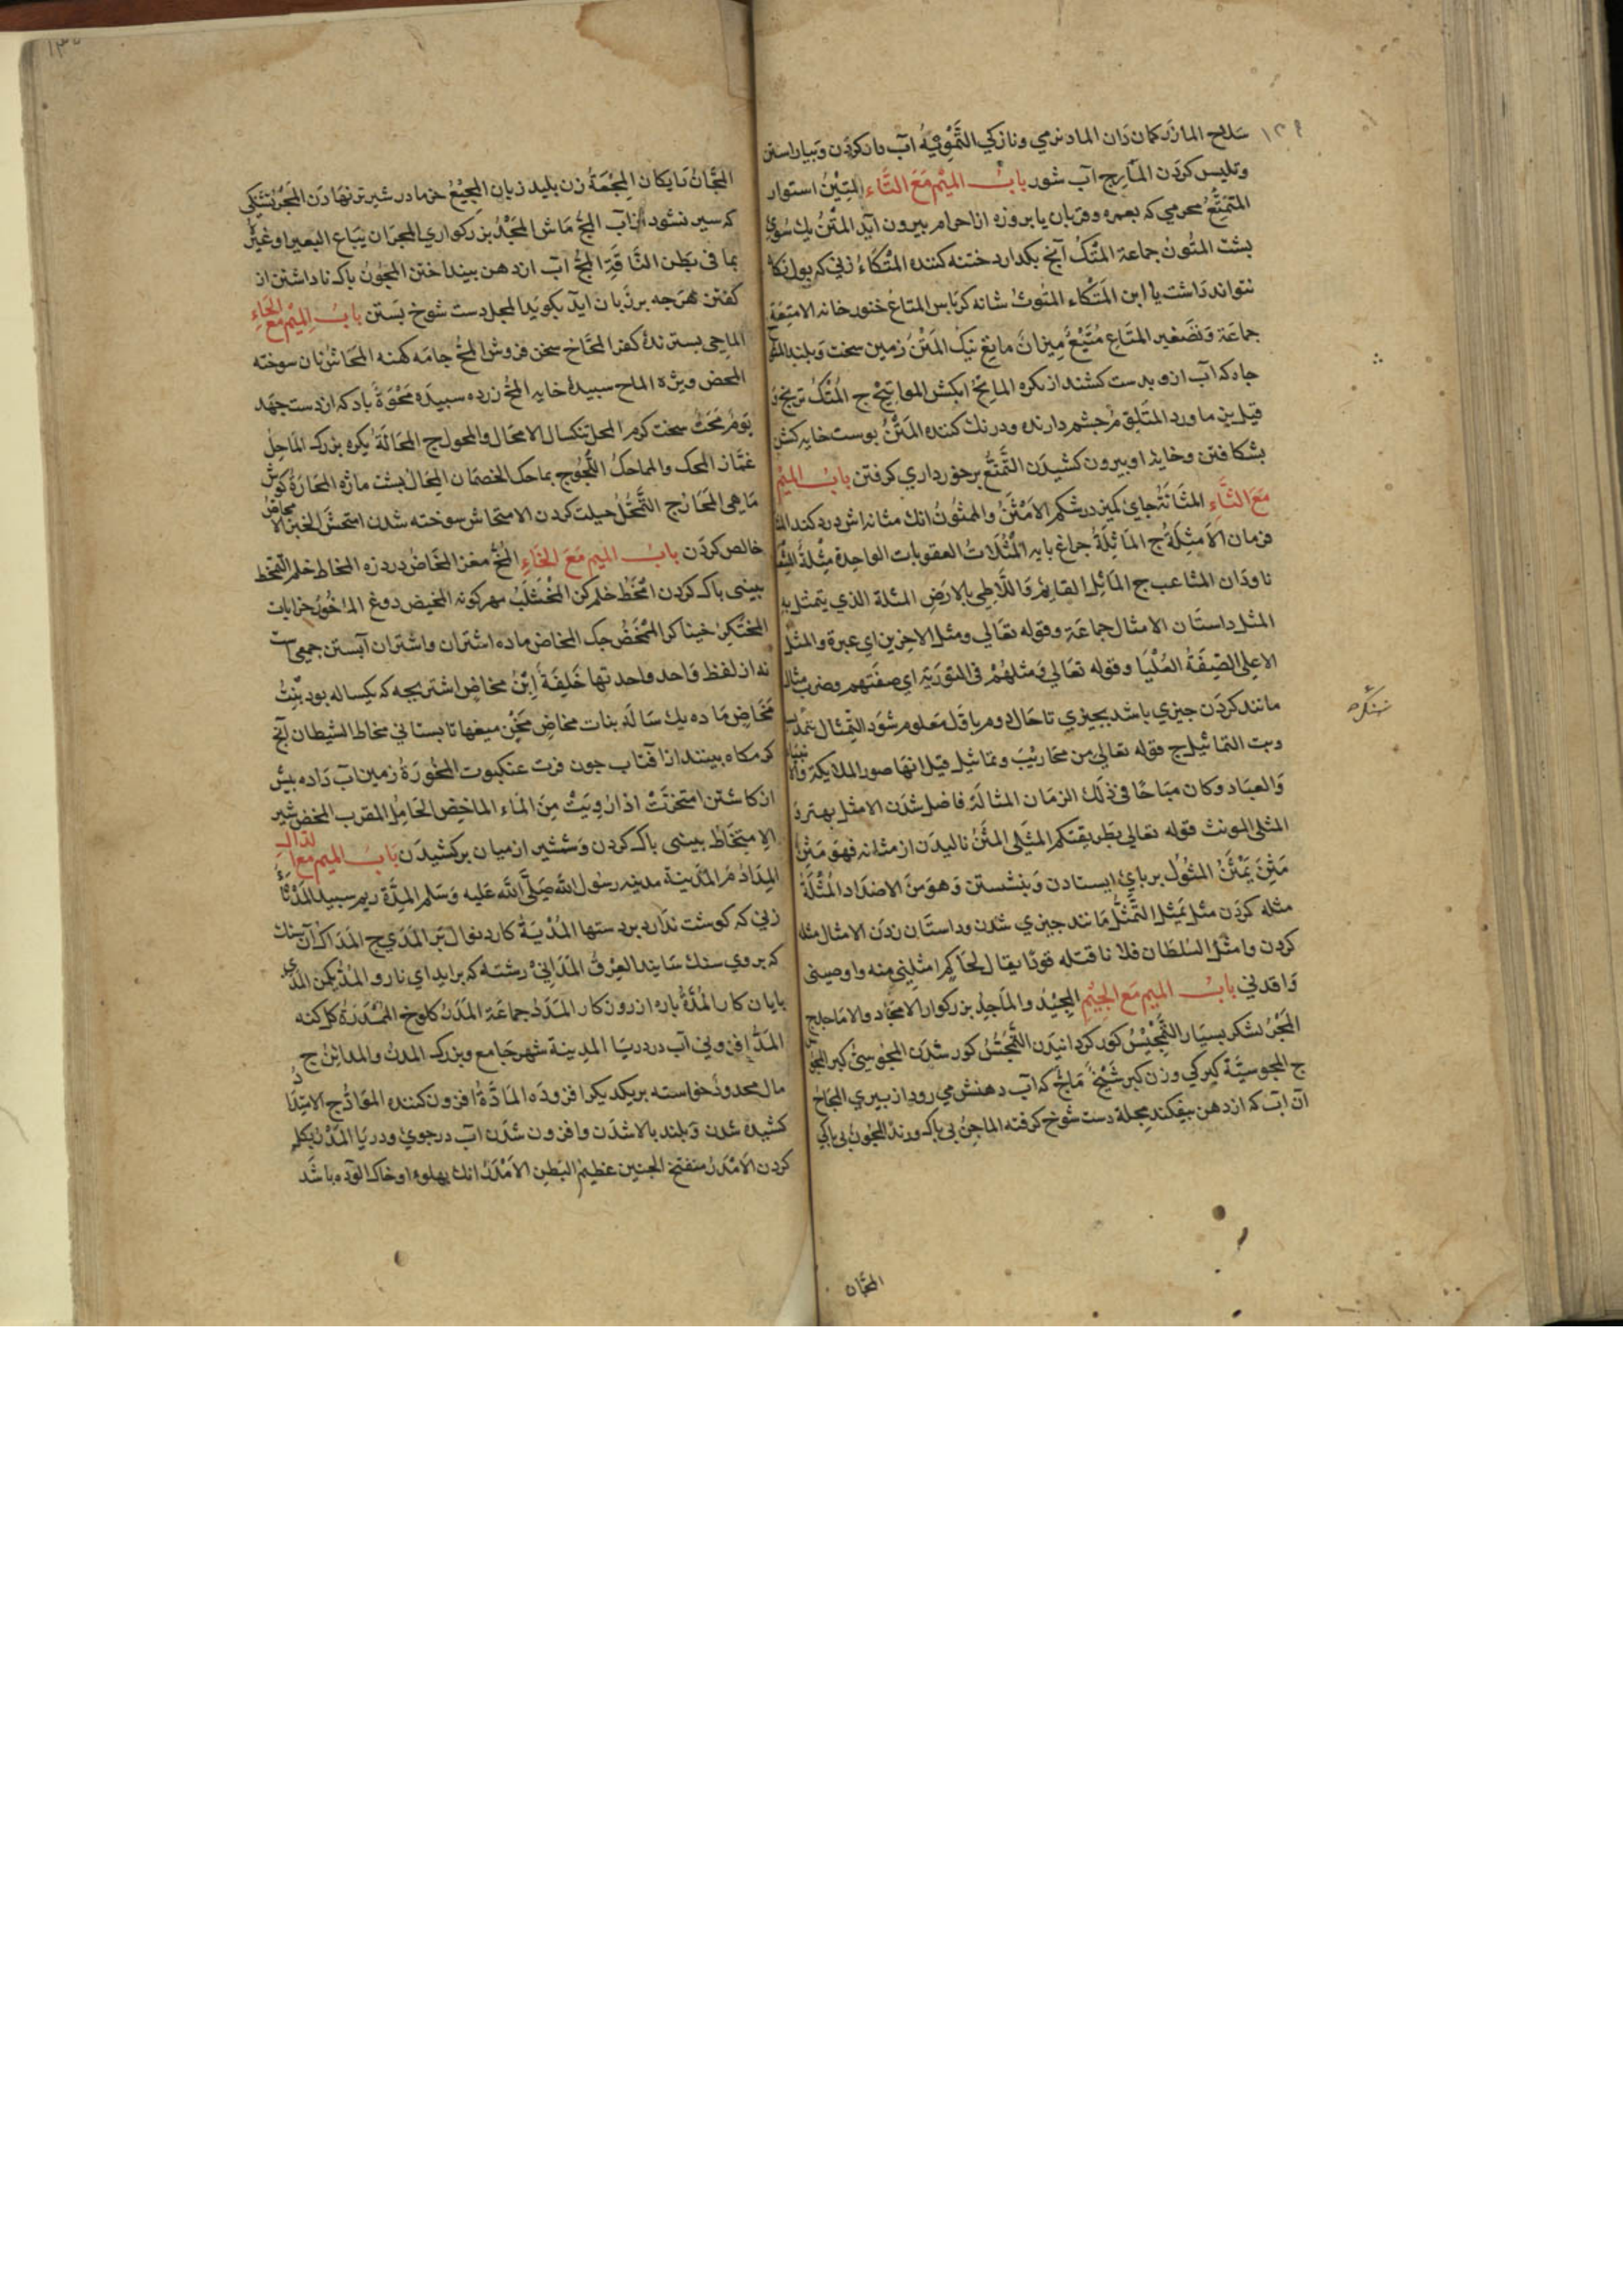 ۱۲۹
سلاح المازر كمان دان الماد نرمي ونازكي التَّمْوِيْهُ آب دان كردن وبياراستن
وتلبيس كردن المأرج آب شور بابُ الميْم مَعَ التَّاء المتِيْنُ استوار
المتمتِّعُ محرمي كه بعمره وقربان يا بروزه از احرام بيرون آيد المتْنُ يك سُوي
بشت المتُونُ جماعة المتْكُ آنچ بكدارد ختنه كننده المتْكَاءُ زني كه بول نكاه
نتواند داشت يا ابن المَتْكاء المتُوثُ شانه كرباس المتاعُ خنور خانه الامتِعَة
جماعَة وتصغير المتَاع مُتَيِّعٌ مِيزانٌ مانع نيك المَتْنُ زمين سخت وبلند
جاه كه آب ازو بدست كشند از بكره المايحُ ابكش المواتيح ج المُتْكُ ترنج
قيل بن ماورد المتَلِق مُرجشم دارنده ودرنك كننده المَتْنُ بوست خايه كش
بشكافتن وخايه او بيرون كشيدن التَّمَتُّعُ برخورداري كرفتن بابُ الميْم
مَعَ الثَّاءِ المثَانَةُ جاي كميز در شكم الاَمْثَنُ والممثُونُ انك مثانه اش درد كند المثال
فرمان الاَمثِلَةُ ج المَاثِلَةُ جراغ بايه المَثُلَاتُ العقوبات الواحدة مثلة
ناودان المثاعب ج المَاثِل القائِم واللَّاطِي بالارض المثلة الذي يتمثل به
المثل داستان الامثال جماعَة وقوله تعَالي ومثلا للاخِرين اي عبرة والمثل
الاعلي الصِّفَةُ العُلْيَا وقوله تعَالي ومثلهُمْ في التورَيَةِ اي صفَتهم وضرب مثال
مانند كردن جيزي باشد بجيزي تا حال دوم با اول معلوم شود التِّمثال
وبت التماثيل ج قوله تعالي من محاريبَ وتماثيل قيل انها صور الملايكة
والعباد وكان مباحًا في ذلك الزمان المثالَة فاضل شدَن الامثل بهتر
المثلي المونث قوله تعالي بطريقتكم المثيلي المثَنُ ناليدَن از مثانه فهو مَثِنٌ
مَثِنَ يَمْثَنُ المثُولُ برباي ايستادن وبنشستن وَهوَ منَ الاضدَاد المُثْلَةُ
مثله كردن مثل تمثِيل التمَثُّل مانند جيزي شدن وداستان زدن الامثال مثله
كردن وامثل السلطان فلانا قتله قودًا يقال للحاكم امثلني منه واوصيني
واقدني بابُ الميم مَع الجيْمِ المجِيْدُ والماجِدُ بزركوار الامجَاد والاماجد ج
المَجْرُ لشكر بسيار التَّمجِيْسُ كور كردانيدن التَّمَجُّسُ كور شدَن المجُوسِيُّ كبر المجوس
ج المجوسيَّة كبركي وزن كبر شَيْخٌ مَاجٌّ كه آب دهنش مي رود از بيري المجَاجُ
آن آب كه از دهن بيفكند مجلة دست شوخ كرفته الماجِنُ بي باك ورند المجُونُ بي باكي
المجَّان
شنكره
۱۳۰
المجَّانُ نايكان المِجْمَةُ زن بليد زبان المجِيْعُ خرما در شير تر نهادن المَجَرُ تشنكي
كه سير نشود از آب المجُّ مَاش المَجْدُ بزركواري المجرَ ان يبَاع البعير او غيرُ
بما في بَطن النَّاقَةِ المجُّ آب از دهن بينداختن المجُونُ باك ناداشتن از
كفتن هَرجه بر زبان ايد بكويد المجل دست شوخ بَستن بابُ المِيْم مَع الحَاءِ
الماحِي بسترنده كفر المحّاح سخن فروش المحُّ جامَه كهنه المحَاشُ نان سوخته
المحض ويژه الماح سبيدة خايه المحُّ زرده سبيده مَحْوَةُ باد كه از دست جهد
يَوْمٌ مَحْتٌ سخت كرم المحل تنكسال الامحَال والمحول ج المحَالَةُ بكره بزرك المَاحِلُ
غمّاز المحك والمماحكُ اللَّجُوج بماحك الخصمان المحَالُ بشت مازه المحَارَةُ كوش
مَاهي المحَارُ ج التمَّحُّلُ حيلت كردن الامتحاش سوخته شدن امتحش الخبز الا محاضُ
خالص كردَن بابُ الميم مَعَ الخَاءِ المُخُّ مغز المخَاضُ درد زه المخاط خلم التمخط
بيني باك كردن امْتَخَط خلم كن المَخْشَلَبُ مهر كونه المخيض دوغ الماخُورُ خرابات
المخنكر خيناكر المِمْخَضُ جك المخاض ماده اشتران واشتران آبستن جمعي است
نه از لفظ واحد واحدتها خَلِفَةٌ اِبْنُ مخاضٍ اشتر بجه كه يكساله بود بِنْتُ
مَخَاضٍ مَاده يك سَالَه بنات مخاضٍ مَخِيْن ميغها تابستاني مخاط الشيطان آنچ
كرمكاه بينند از آفتاب جون فرت عنكبوت المخُورَةُ زمين آب دَاده بيش
از كاشتن امتخزَتْ اذا رُوِيَتْ مِنَ المَاء الماخِض الحَامِل المقرب المخض شير
الاِمتِخَاط بيني باك كردن وَشمشير از ميان بركشيدَن بابُ الميم مع الدال
المِدَادُ مُر المَدِينة مدينه رسُول الله صَلَّي الله عَليه وَسَلم المِدَّة ريم سبيد المَدْشَاءُ
زني كه كوشت ندارد بر دستها المُدْيَةُ كارد بفوالتَر المَدَي ج المَدَاك آن سنك
كه بروي سنك سَايند العِرْقُ المَدَانِيْ رشته كه برايد اي نارو المُدُّ يكمن المدَي
بايان كار المُدَّةُ باره از روزكار المَدَدُ جماعَة المَدَرُ كلوخ المَمْدَرَةُ كل كنه
المَدُّ افزوني آب در دريَا المدِينة شهر جَامع وبزرك المدن والمداين ج
مال ممدود خواسته بريكديكر افزوده المَادَّةُ افزون كننده الموَادُّ ج الامتِدَادُ
كشيده شدن وبلند بالا شدَن وافزون شدَن آب در جوي ودريا المَدْرُ بكل
كردن الاَمْدَرُ منتفخ الجنبين عظيمُ البَطن الاَمْدَرُ انك بهلوه او خاك آلوده باشَد